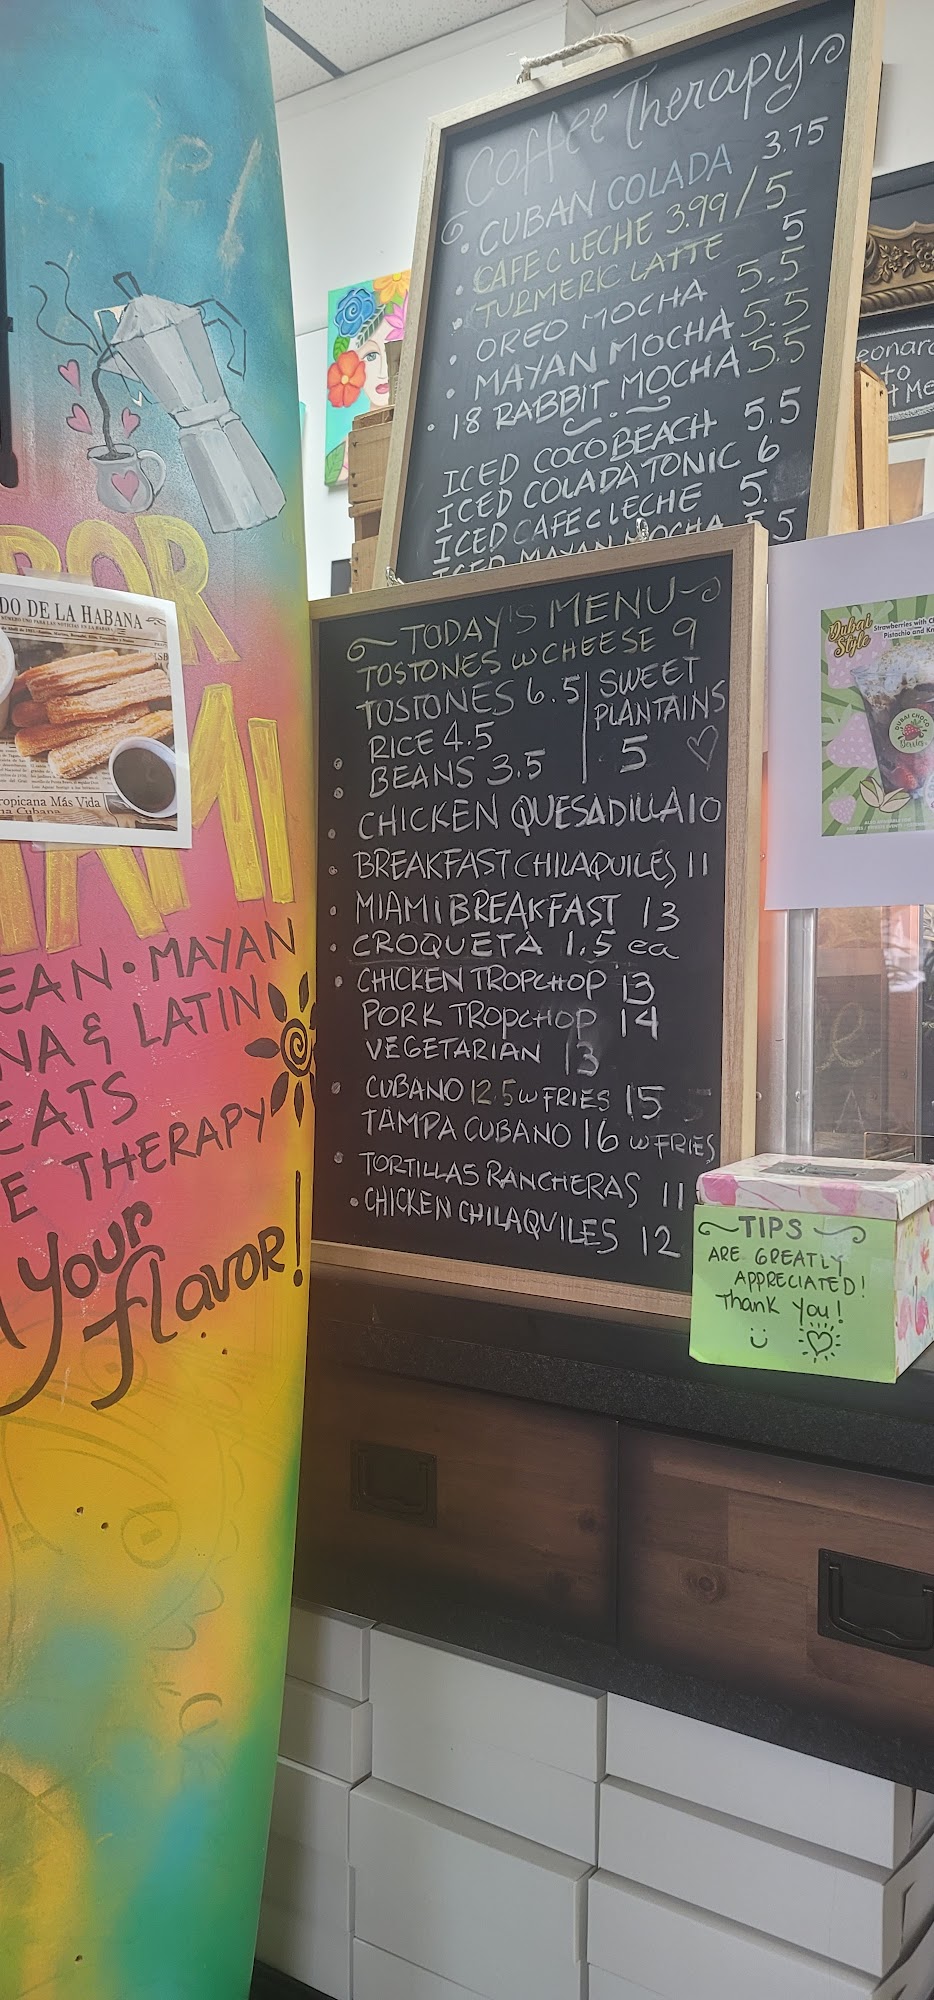 Coffee Therapy
CUBAN COLADA 3.75
CAFE C LECHE 3.99/5
TURMERIC LATTE 5
OREO MOCHA 5.5
MAYAN MOCHA 5.5
18 RABBIT MOCHA 5.5
ICED COCO BEACH 5.5
ICED COLADA TONIC 6
ICED CAFE C LECHE 5.
ICED MAYAN MOCHA 5.5
TODAY'S MENU
TOSTONES W CHEESE 9
TOSTONES 6.5
RICE 4.5
BEANS 3.5
SWEET
PLANTAINS
5
CHICKEN QUESADILLA 10
BREAKFAST CHILAQUILES 11
MIAMI BREAKFAST 13
CROQUETA 1.5 ea
CHICKEN TROPCHOP 13
PORK TROPCHOP 14
VEGETARIAN 13
CUBANO 12.5 W FRIES 15
TAMPA CUBANO 16 W FRIES
TORTILLAS RANCHERAS 11
CHICKEN CHILAQUILES 12
TIPS
ARE GREATLY
APPRECIATED!
Thank you!
DO DE LA HABANA
Tropicana Más Vida
na Cubana
BOR
AMI
EAN • MAYAN
NA & LATIN
EATS
E THERAPY
Your
flavor!
Dubai
Style
Strawberries with
Pistachio and
DUBAI CHOCO
Berries
eonar
to
t Me